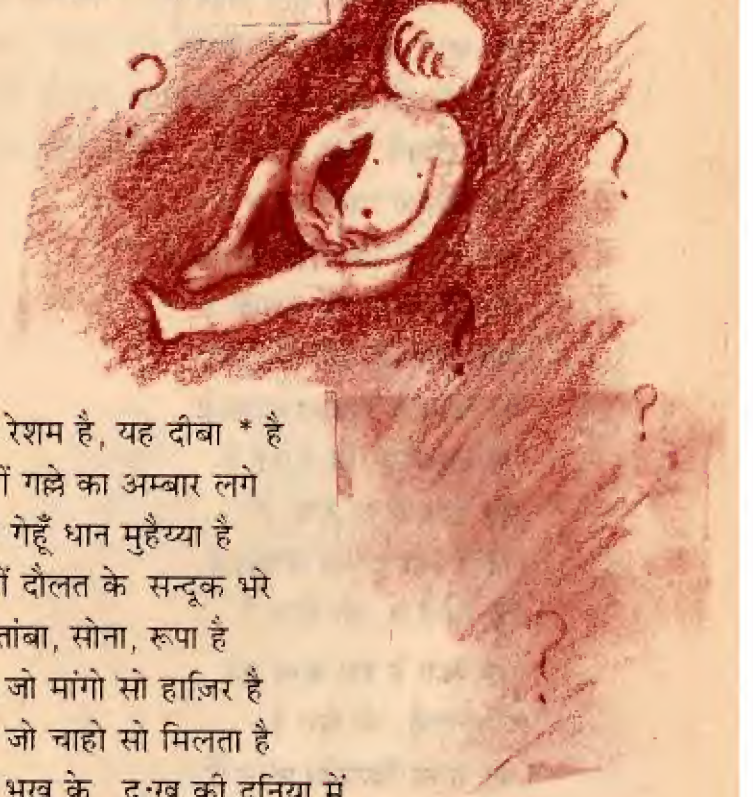 रेशम है, यह दीबा * है
गल्ले का अम्बार लगे
गेहूँ धान मुहैय्या है
दौलत के सन्दूक भरे
तांबा, सोना, रूपा है
जो मांगो सो हाज़िर है
जो चाहो सो मिलता है
भूख के दुःख की दुनिया में